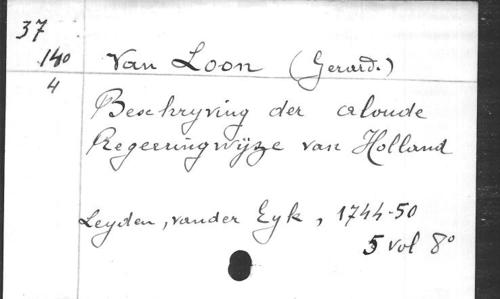 37
140 Van Loon (Gerard.)
4
Beschryving der aloude
Regeeringwijze van Holland
Leyden, vander Eyk, 1744-50
5 vol 8°